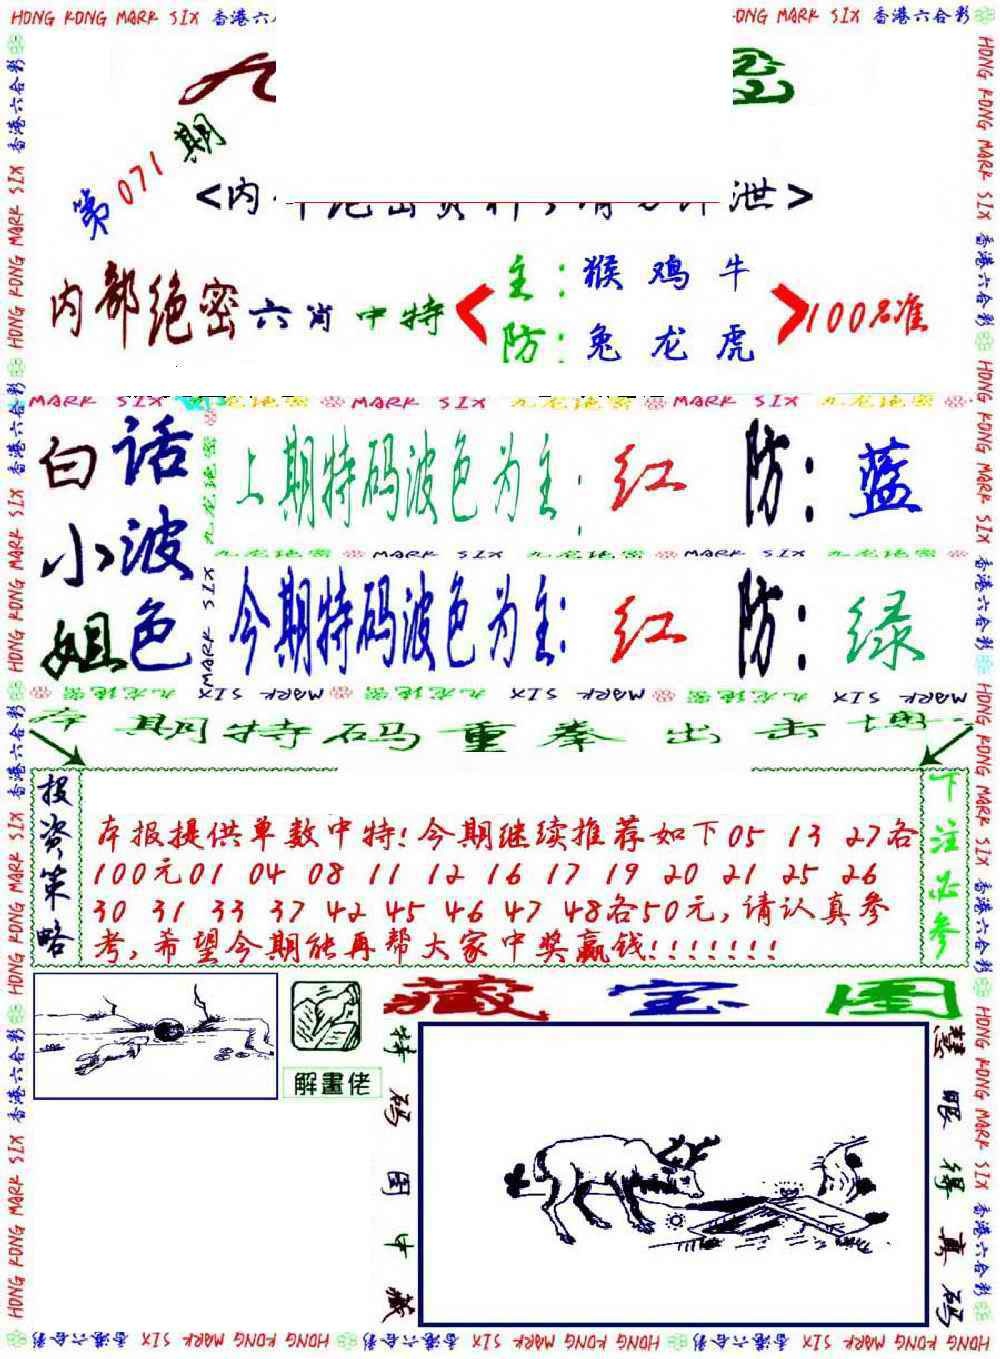 HONG KONG MARK SIX 香港六
ONG MARK SIX 香港六合彩
第071期
<内
泄>
内部绝密六肖中特
主:猴鸡牛
防:兔龙虎
100%准
MARK SIX 九龙绝密 MARK SIX 九龙绝密 MARK SIX 九龙绝密
白小姐
话波色
上期特码波色为主:红 防:蓝
九龙绝密 MARK SIX 九龙绝密 MARK SIX 九龙绝密
今期特码波色为主:红 防:绿
九龙绝密 MARK SIX 九龙绝密 MARK SIX 九龙绝密 MARK SIX
本期特码重拳出击
投资策略
本报提供单数中特!今期继续推荐如下05 13 27各
100元01 04 08 11 12 16 17 19 20 21 25 26
30 31 33 37 42 45 46 47 48各50元,请认真参
考,希望今期能再帮大家中奖赢钱!!!!!!!
下注必参
解畫佬
藏宝图
特码图中藏
慧眼得真码
HONG KONG MARK SIX 香港六合彩